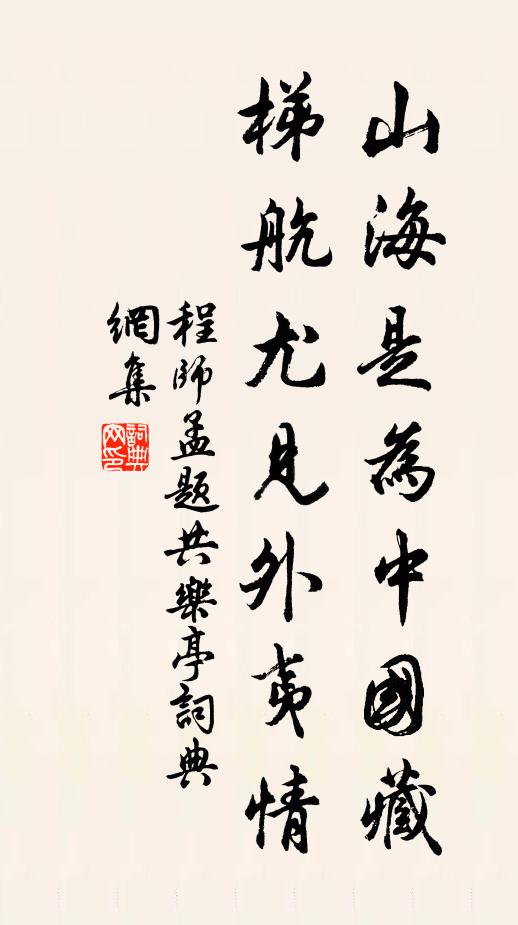 山海是為中國藏
梯航尤見外夷情
程師孟題共樂亭詞典
網集
詞典
网印